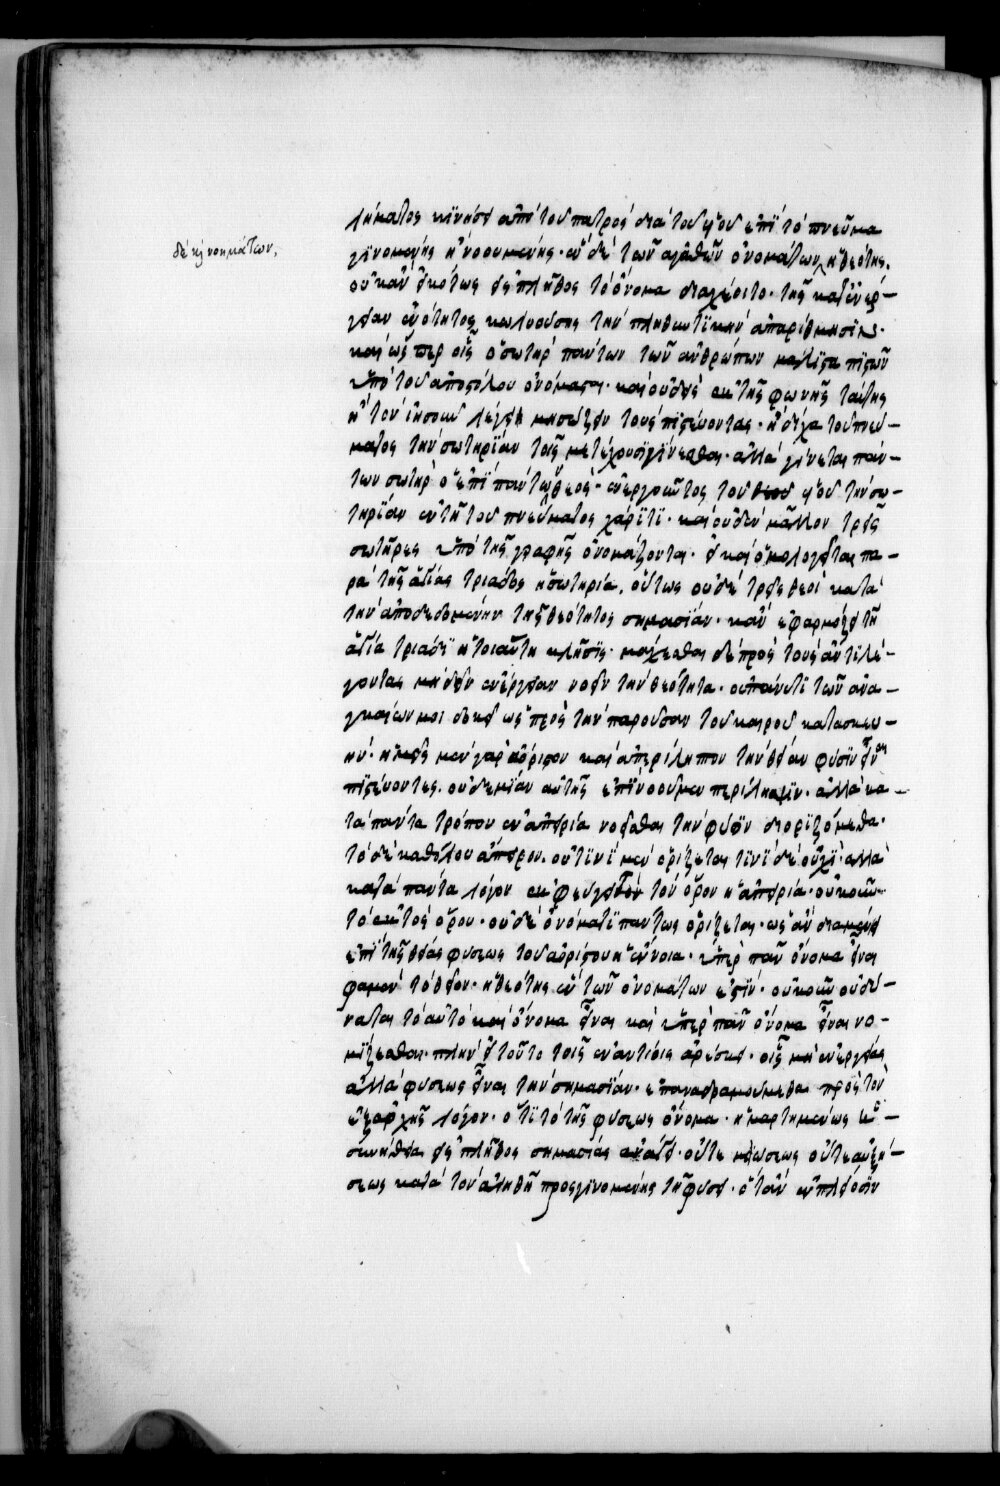 δὲ κὴ νοημάτων.
λήματος κινήσει ἀπὸ τοῦ πατρὸς διὰ τοῦ υἱοῦ ἐπὶ τὸ πνεῦμα
γινομένης ἢ νοουμένης · οὐδὲ τῶν ἀγαθῶν ὀνομάτων ἡ θεότης.
οὐκ ἂν εἰκότως εἰς πλῆθος τὸ ὄνομα διαχέοιτο · τῆς κατ' ἐνέρ-
γειαν ἑνότητος κωλυούσης τὴν πληθυντικὴν ἀπαρίθμησιν.
καὶ ὥσπερ εἷς ὁ σωτὴρ πάντων τῶν ἀνθρώπων μάλιστα πιστῶν
ὑπὸ τοῦ ἀποστόλου ὀνόμασται · καὶ οὐδεὶς ἐκ τῆς φωνῆς ταύτης
ἢ τὸν ἰησοῦν λέγει μὴ σώζειν τοὺς πιστεύοντας · ἢ δίχα τοῦ πνεύ-
ματος τὴν σωτηρίαν τοῖς μετέχουσι γίνεσθαι · ἀλλὰ γίνεται πάν-
των σωτὴρ ὁ ἐπὶ πάντων θεός · ἐνεργοῦντος τοῦ θεοῦ υἱοῦ τὴν σω-
τηρίαν ἐν τῇ τοῦ πνεύματος χάριτι · καὶ οὐδὲν μᾶλλον τρεῖς
σωτῆρες ὑπὸ τῆς γραφῆς ὀνομάζονται · εἰ καὶ ὁμολογεῖται πα-
ρὰ τῆς ἁγίας τριάδος ἡ σωτηρία, οὕτως οὐδὲ τρεῖς θεοὶ κατὰ
τὴν ἀποδεδομένην τῆς θεότητος σημασίαν · κἂν ἐφαρμόζει τῇ
ἁγίᾳ τριάδι ἡ τοιαύτη κλῆσις · μάχεσθαι δὲ πρὸς τοὺς ἀντιλέ-
γοντας μὴ δεῖν ἐνέργειαν νοεῖν τὴν θεότητα · οὐ πάνυ τι τῶν ἀνα-
γκαίων μοι δοκεῖ ὡς πρὸς τὴν παροῦσαν τοῦ καιροῦ κατασκευ-
ήν · ἡμεῖς μὲν γὰρ ἀόριστον καὶ ἀπερίληπτον τὴν θείαν φύσιν εἶναι
πιστεύοντες. οὐδεμίαν αὐτῆς ἐπινοοῦμεν περίληψιν · ἀλλὰ κα-
τὰ πάντα τρόπον ἐν ἀπειρίᾳ νοεῖσθαι τὴν φύσιν διοριζόμεθα.
τὸ δὲ καθόλου ἄπειρον. οὐ τινὶ μὲν ὁρίζεται τινὶ δὲ οὐχί · ἀλλὰ
κατὰ πάντα λόγον ἐκφεύγει τὸν ὅρον ἡ ἀπειρία · οὐκοῦν
τὸ ἐκτὸς ὅρου · οὐδὲ ὀνόματι πάντως ὁρίζεται · ὡς ἂν διαμένῃ
ἐπὶ τῆς θείας φύσεως τοῦ ἀορίστου ἡ ἔννοια · ὑπὲρ πᾶν ὄνομα εἶναι
φαμὲν τὸ θεῖον · ἡ θεότης ἓν τῶν ὀνομάτων ἐστίν · οὐκοῦν οὐ δύ-
ναται τὸ αὐτὸ καὶ ὄνομα εἶναι καὶ ὑπὲρ πᾶν ὄνομα εἶναι νο-
μίζεσθαι · πλὴν εἰ τοῦτο τοῖς ἐναντίοις ἀρέσκει · οἷς μὴ ἐνεργείας
ἀλλὰ φύσεως εἶναι τὴν σημασίαν · ἐπαναδραμούμεθα πρὸς τὸν
ἐξ ἀρχῆς λόγον · ὅτι τὸ τῆς φύσεως ὄνομα · ἡμαρτημένως ἡ
συνήθεια εἰς πλῆθος σημασίας ἀνάγει · οὔτε μειώσεως οὔτε αὐξή-
σεως κατὰ τὸν ἀληθῆ προσγινομένης τῇ φύσει · ὅταν ἐν πλείοσιν